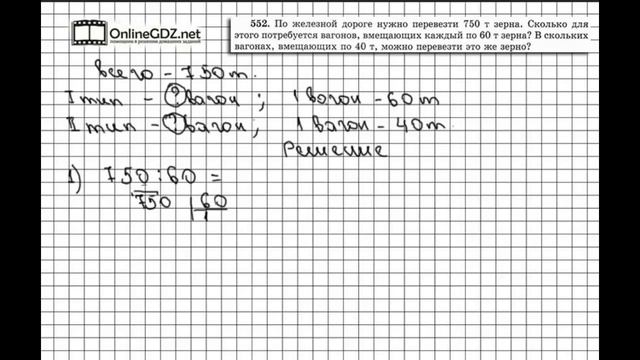 OnlineGDZ.net
помощник в решении домашних заданий
552. По железной дороге нужно перевезти 750 т зерна. Сколько для
этого потребуется вагонов, вмещающих каждый по 60 т зерна? В скольких
вагонах, вмещающих по 40 т, можно перевезти это же зерно?
всего – 750 т.
I тип – ? вагон ; 1 вагон – 60 т
II тип – ? вагон; 1 вагон – 40 т.
Решение
1) 750 : 60 =
750 60
1